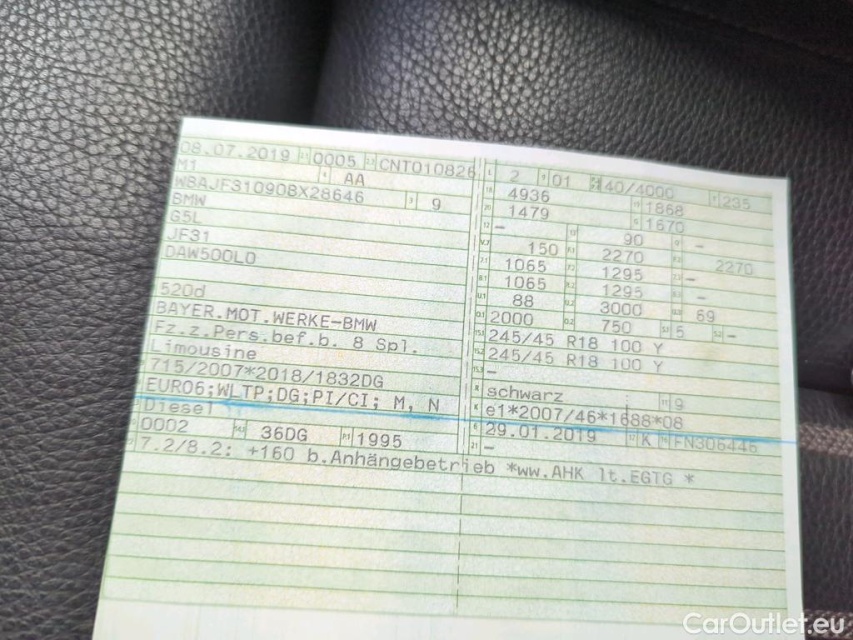 08.07.2019 0005 CNT010826
M1 AA
WBAJF31090BX28646 9
BMW
G5L
JF31
DAW500L0
520d
BAYER.MOT.WERKE-BMW
Fz.z.Pers.bef.b. 8 Spl.
Limousine
715/2007*2018/1832DG
EURO6;WLTP;DG;PI/CI; M, N
Diesel
0002 36DG 1995
7.2/8.2: +160 b.Anhängebetrieb *ww.AHK lt.EGTG *
2 01 140/4000 235
4936 1868
1479 1670
– 90 –
150 2270 2270
1065 1295 –
1065 1295 –
88 3000 69
2000 750 5 –
245/45 R18 100 Y
245/45 R18 100 Y
–
schwarz 9
e1*2007/46*1688*08
29.01.2019 K FN306446
–
CarOutlet.eu